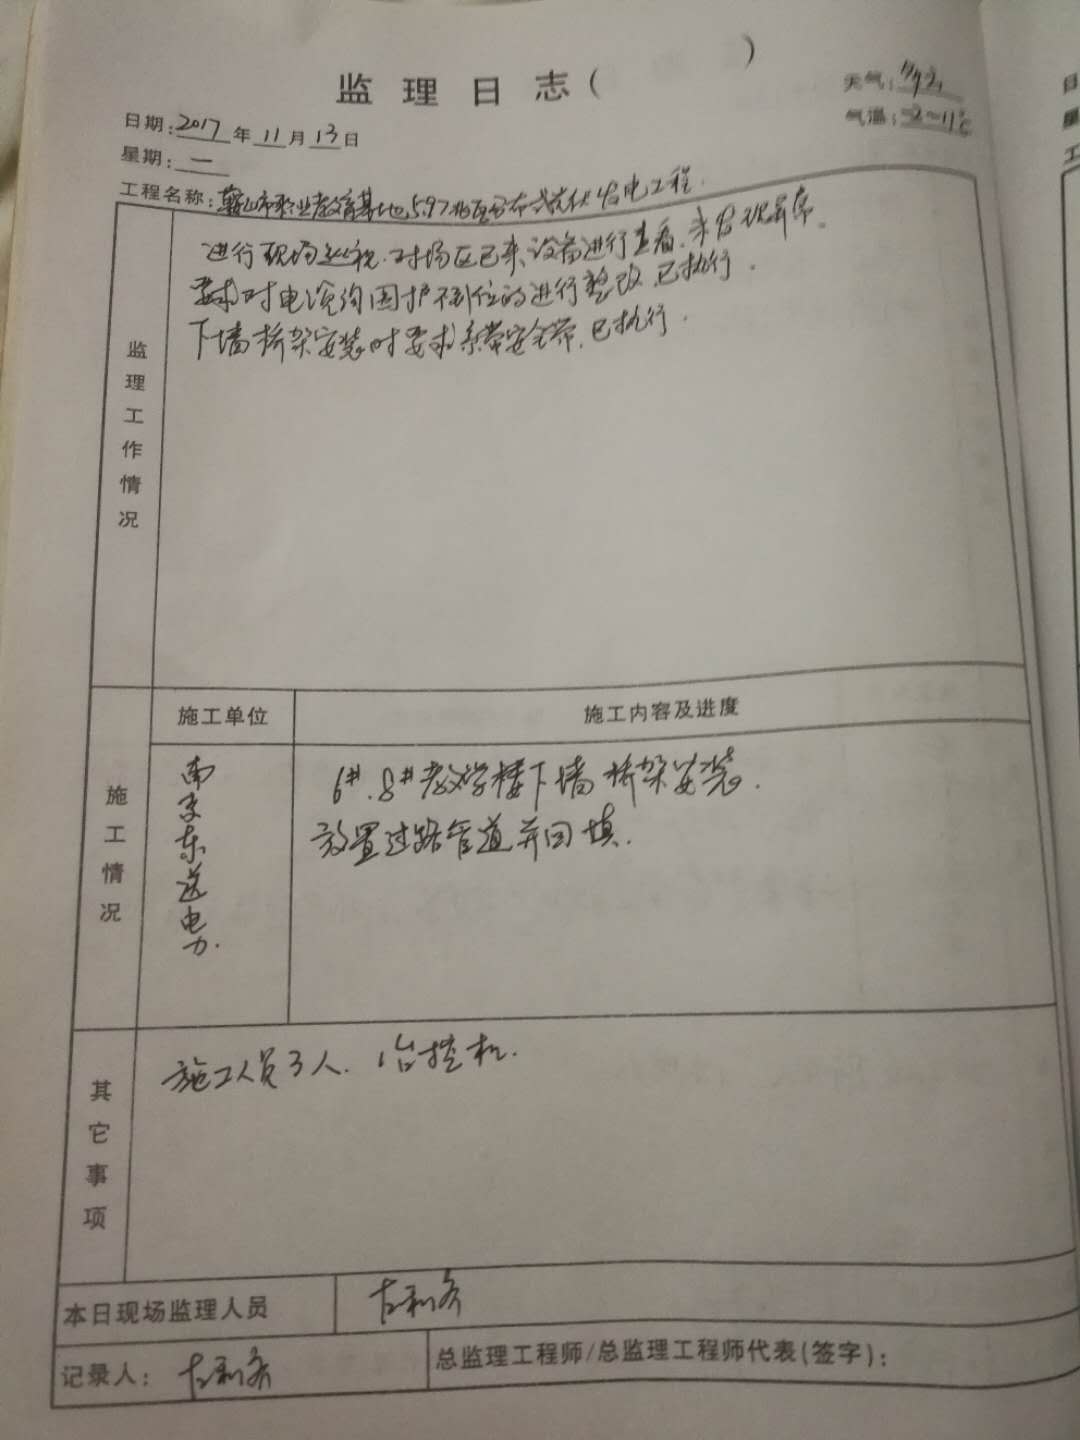 监理日志（ ）
天气：
日期：2017年11月13日
气温：-2~11℃
星期：一
工程名称：鞍山市职业教育基地5.97兆瓦分布式光伏发电工程.
监理工作情况
进行现场巡视.对场区已来设备进行查看.未发现异常.
要求对电缆沟围护不到位的进行整改.已执行.
下墙桥架安装时要求系带安全带.已执行.
施工情况
施工单位
施工内容及进度
南京东送电力.
6#.8#教学楼下墙桥架安装.
放置过路管道并回填.
其它事项
施工人员3人. 1台挖机.
本日现场监理人员
记录人：
总监理工程师/总监理工程师代表(签字)：